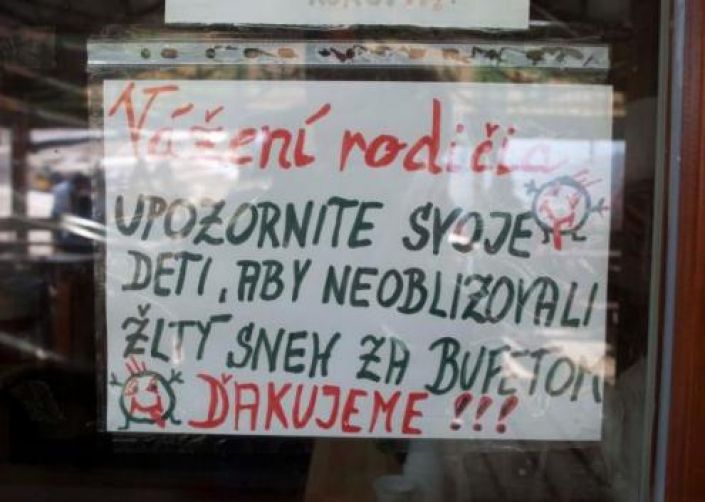 Vážení rodičia
UPOZORNITE SVOJE
DETI, ABY NEOBLIZOVALI
ŽLTÝ SNEH ZA BUFETOM
ĎAKUJEME !!!